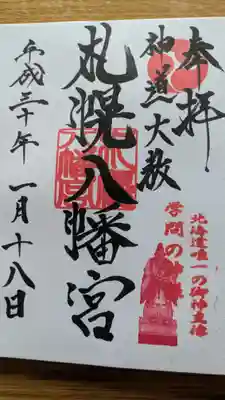 奉拝
神道大教
札幌八幡宮
平成三十年一月十八日
北海道唯一の御神尊像
学問の神様